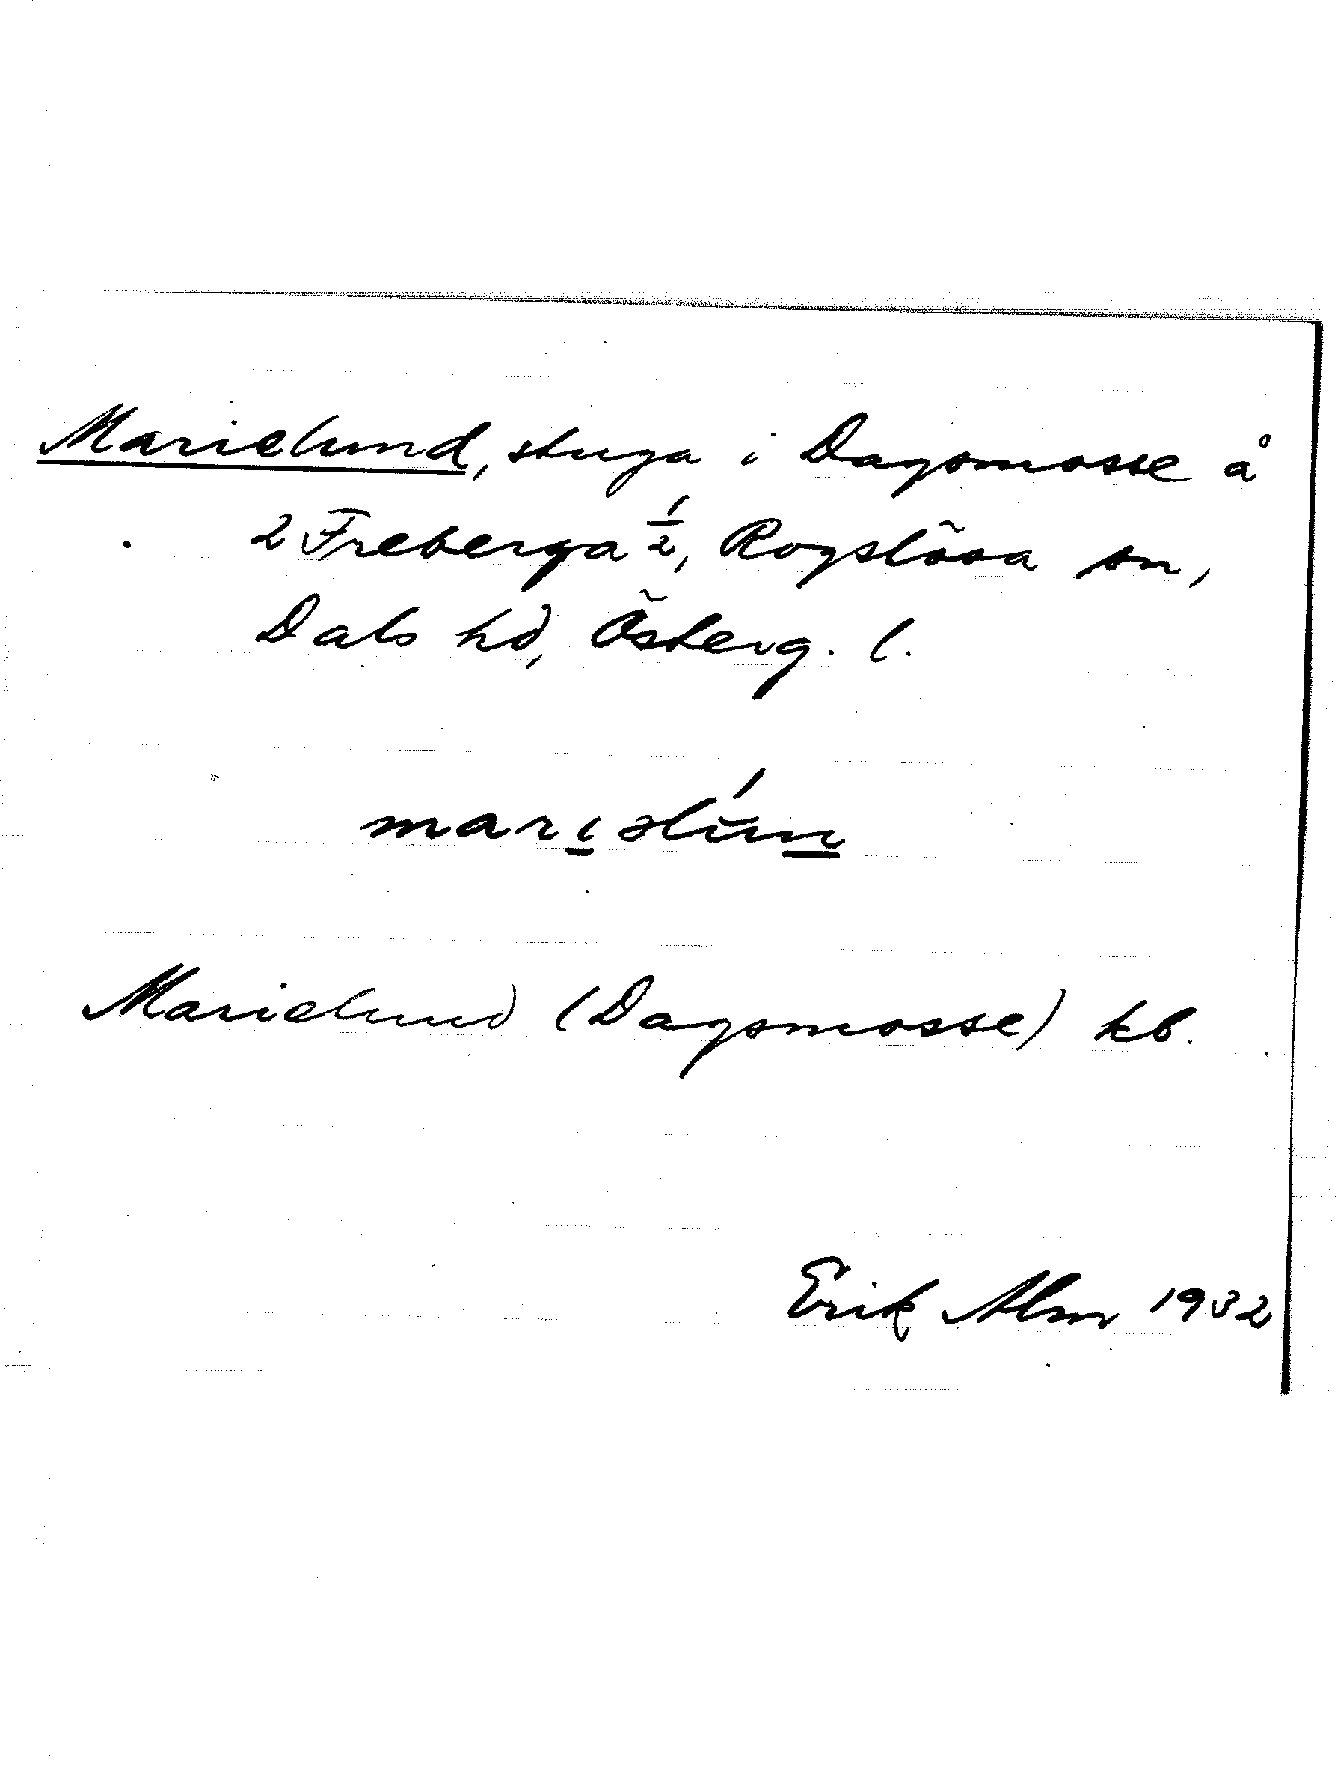 Marielund, stuga i Dagsmosse å
2 Freberga 1/2, Rogslösa sn,
Dals hd, Österg. l.
Marielund (Dagsmosse) kb.
Erik Alm 1932